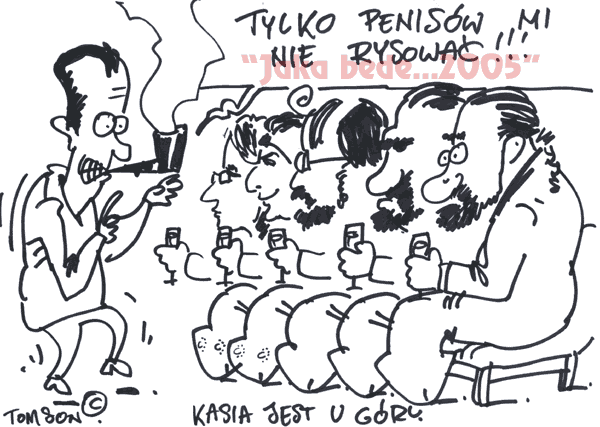 TYLKO PENISÓW MI
NIE RYSOWAĆ!!!
"Jaka bede...2005"
KASIA JEST U GÓRY.
TOMSON ©